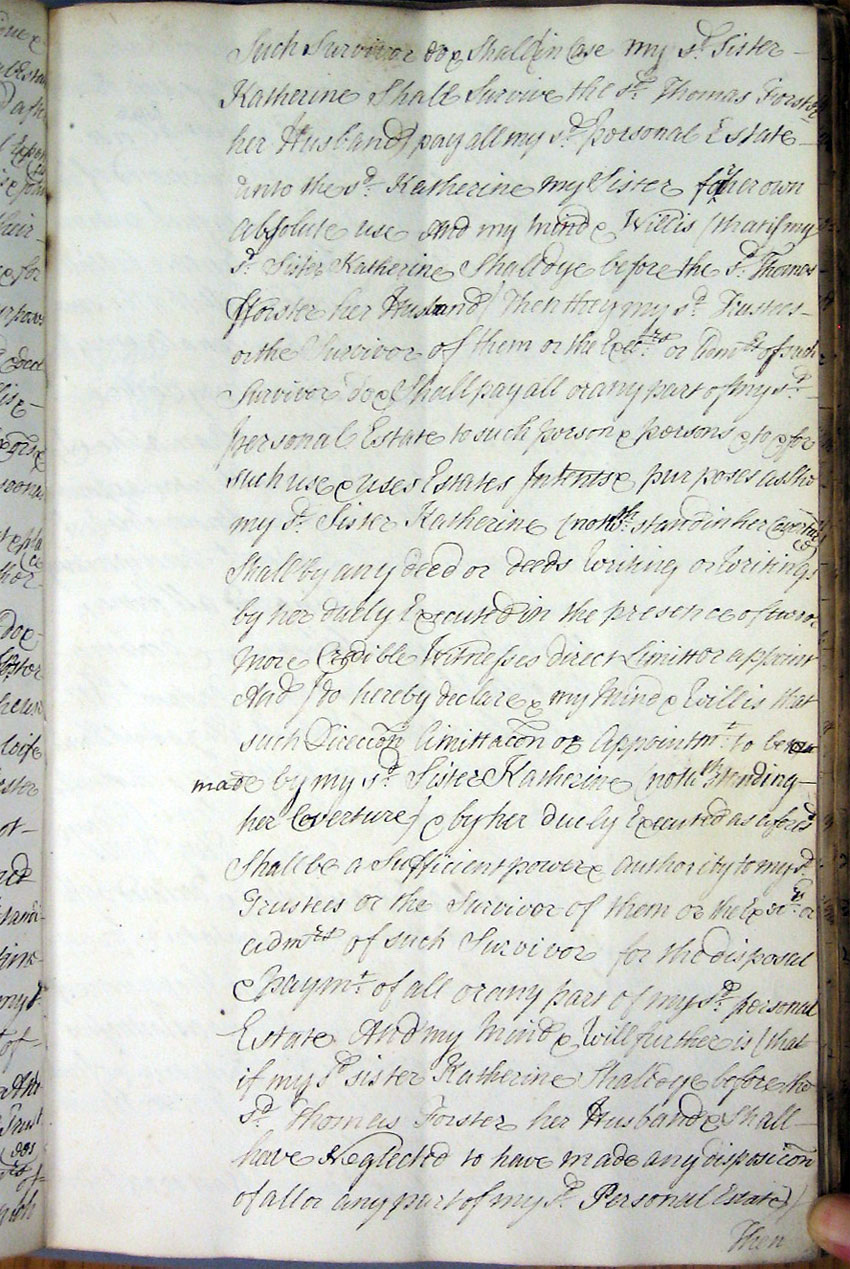 Such Survivor do & shall (in Case my sd. Sister
Katherine Shall Survive the sd. Thomas Forster
her Husband) pay all my sd. personal Estate
unto the sd. Katherine my Sister for her own
absolute use And my mind & Will is (that if my
sd. Sister Katherine Shall dye before the sd. Thomas
fforster her Husband) Then they my sd. Trustees
or the Survivor of them or the Exectrs. or Admrs. of such
Survivor do & Shall pay all or any part of my sd.
personal Estate to such person & persons & to & for
such use & uses Estates Intents & purposes as she
my sd. Sister Katherine (notwthstanding her Coverture)
Shall by any deed or deeds Writing or Writings
by her duely Executed in the presence of two or
more Credible Witnesses direct Limitt or appoint
And I do hereby declare & my Mind & Will is that
such Direccon Limittacon or Appointmt. to be
made by my sd. Sister Katherine (notwthstanding
her Coverture) & by her duely Executed as aforesd.
Shall be a Sufficient power & authority to my sd.
Trustees or the Survivor of them or the Exrs. or
admrs. of such Survivor for the disposal
& paymt. of all or any part of my sd. personal
Estate And my Mind & Will further is (that
if my sd. sister Katherine Shall dye before the
sd. Thomas Forster her Husband & shall
have Neglected to have made any disposicon
of all or any part of my sd. Personal Estate)
Then